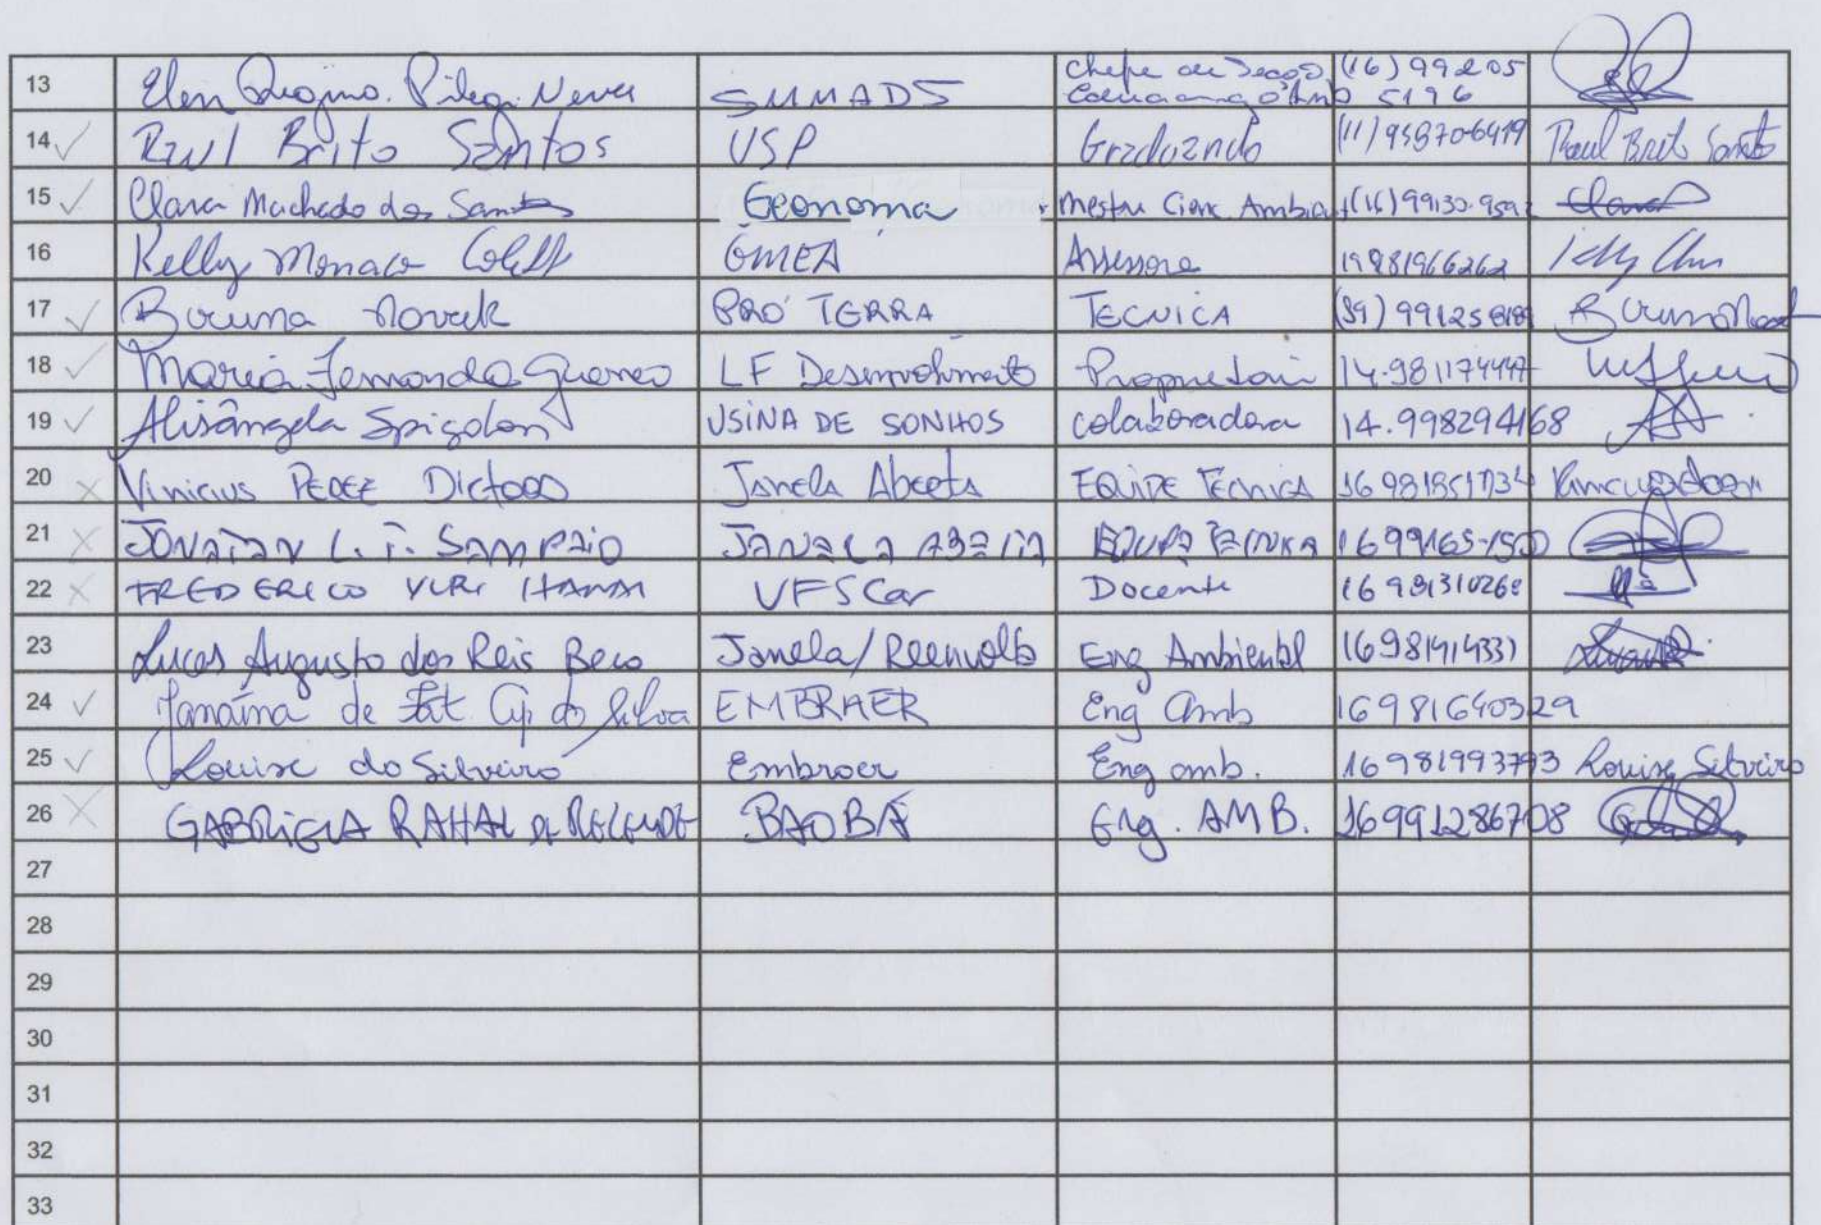 13 Elen Pilegi Neves SMMADS Chefe de Seção (16) 99205
5196
14 Raul Brito Santos USP Graduando (11) 958706419 Raul Brito Santos
15 Clara Machado dos Santos Geonoma Mestre Cienc. Ambient (16) 99130.959 Clara
16 Kelly Monaco GMEA Assessora 19981966262 Kelly
17 Bruna Novak PRÓ TERRA TECNICA 991258189 Bruna Novak
18 Maria Fernanda Guerreo LF Desenvolvimento Proprietari 14.981174447
19 Alisângela Spigolon USINA DE SONHOS colaboradora 14.998294168
20 Vinicius PEREZ Dictoro Janela Aberta EQUIPE TECNICA 16 981851734
21 JONATAN L. T. SAMPAIO JANELA ABERTA EQUIPE TECNICA 1699165-1500
22 FREDERICO YURI HANAI UFSCar Docente 16 981310268
23 Lucas Augusto dos Reis Beco Janela/Reenvolta Eng Ambiental 16981914337
24 Janaína de Fát. Ap. da Silva EMBRAER Eng Amb 16981640329
25 Louise da Silveira Embraer Eng amb. 16981993793 Louise Silveira
26 GABRIELA RAHAL DE REZENDE BAOBÁ Eng. AMB. 16991286708
27
28
29
30
31
32
33